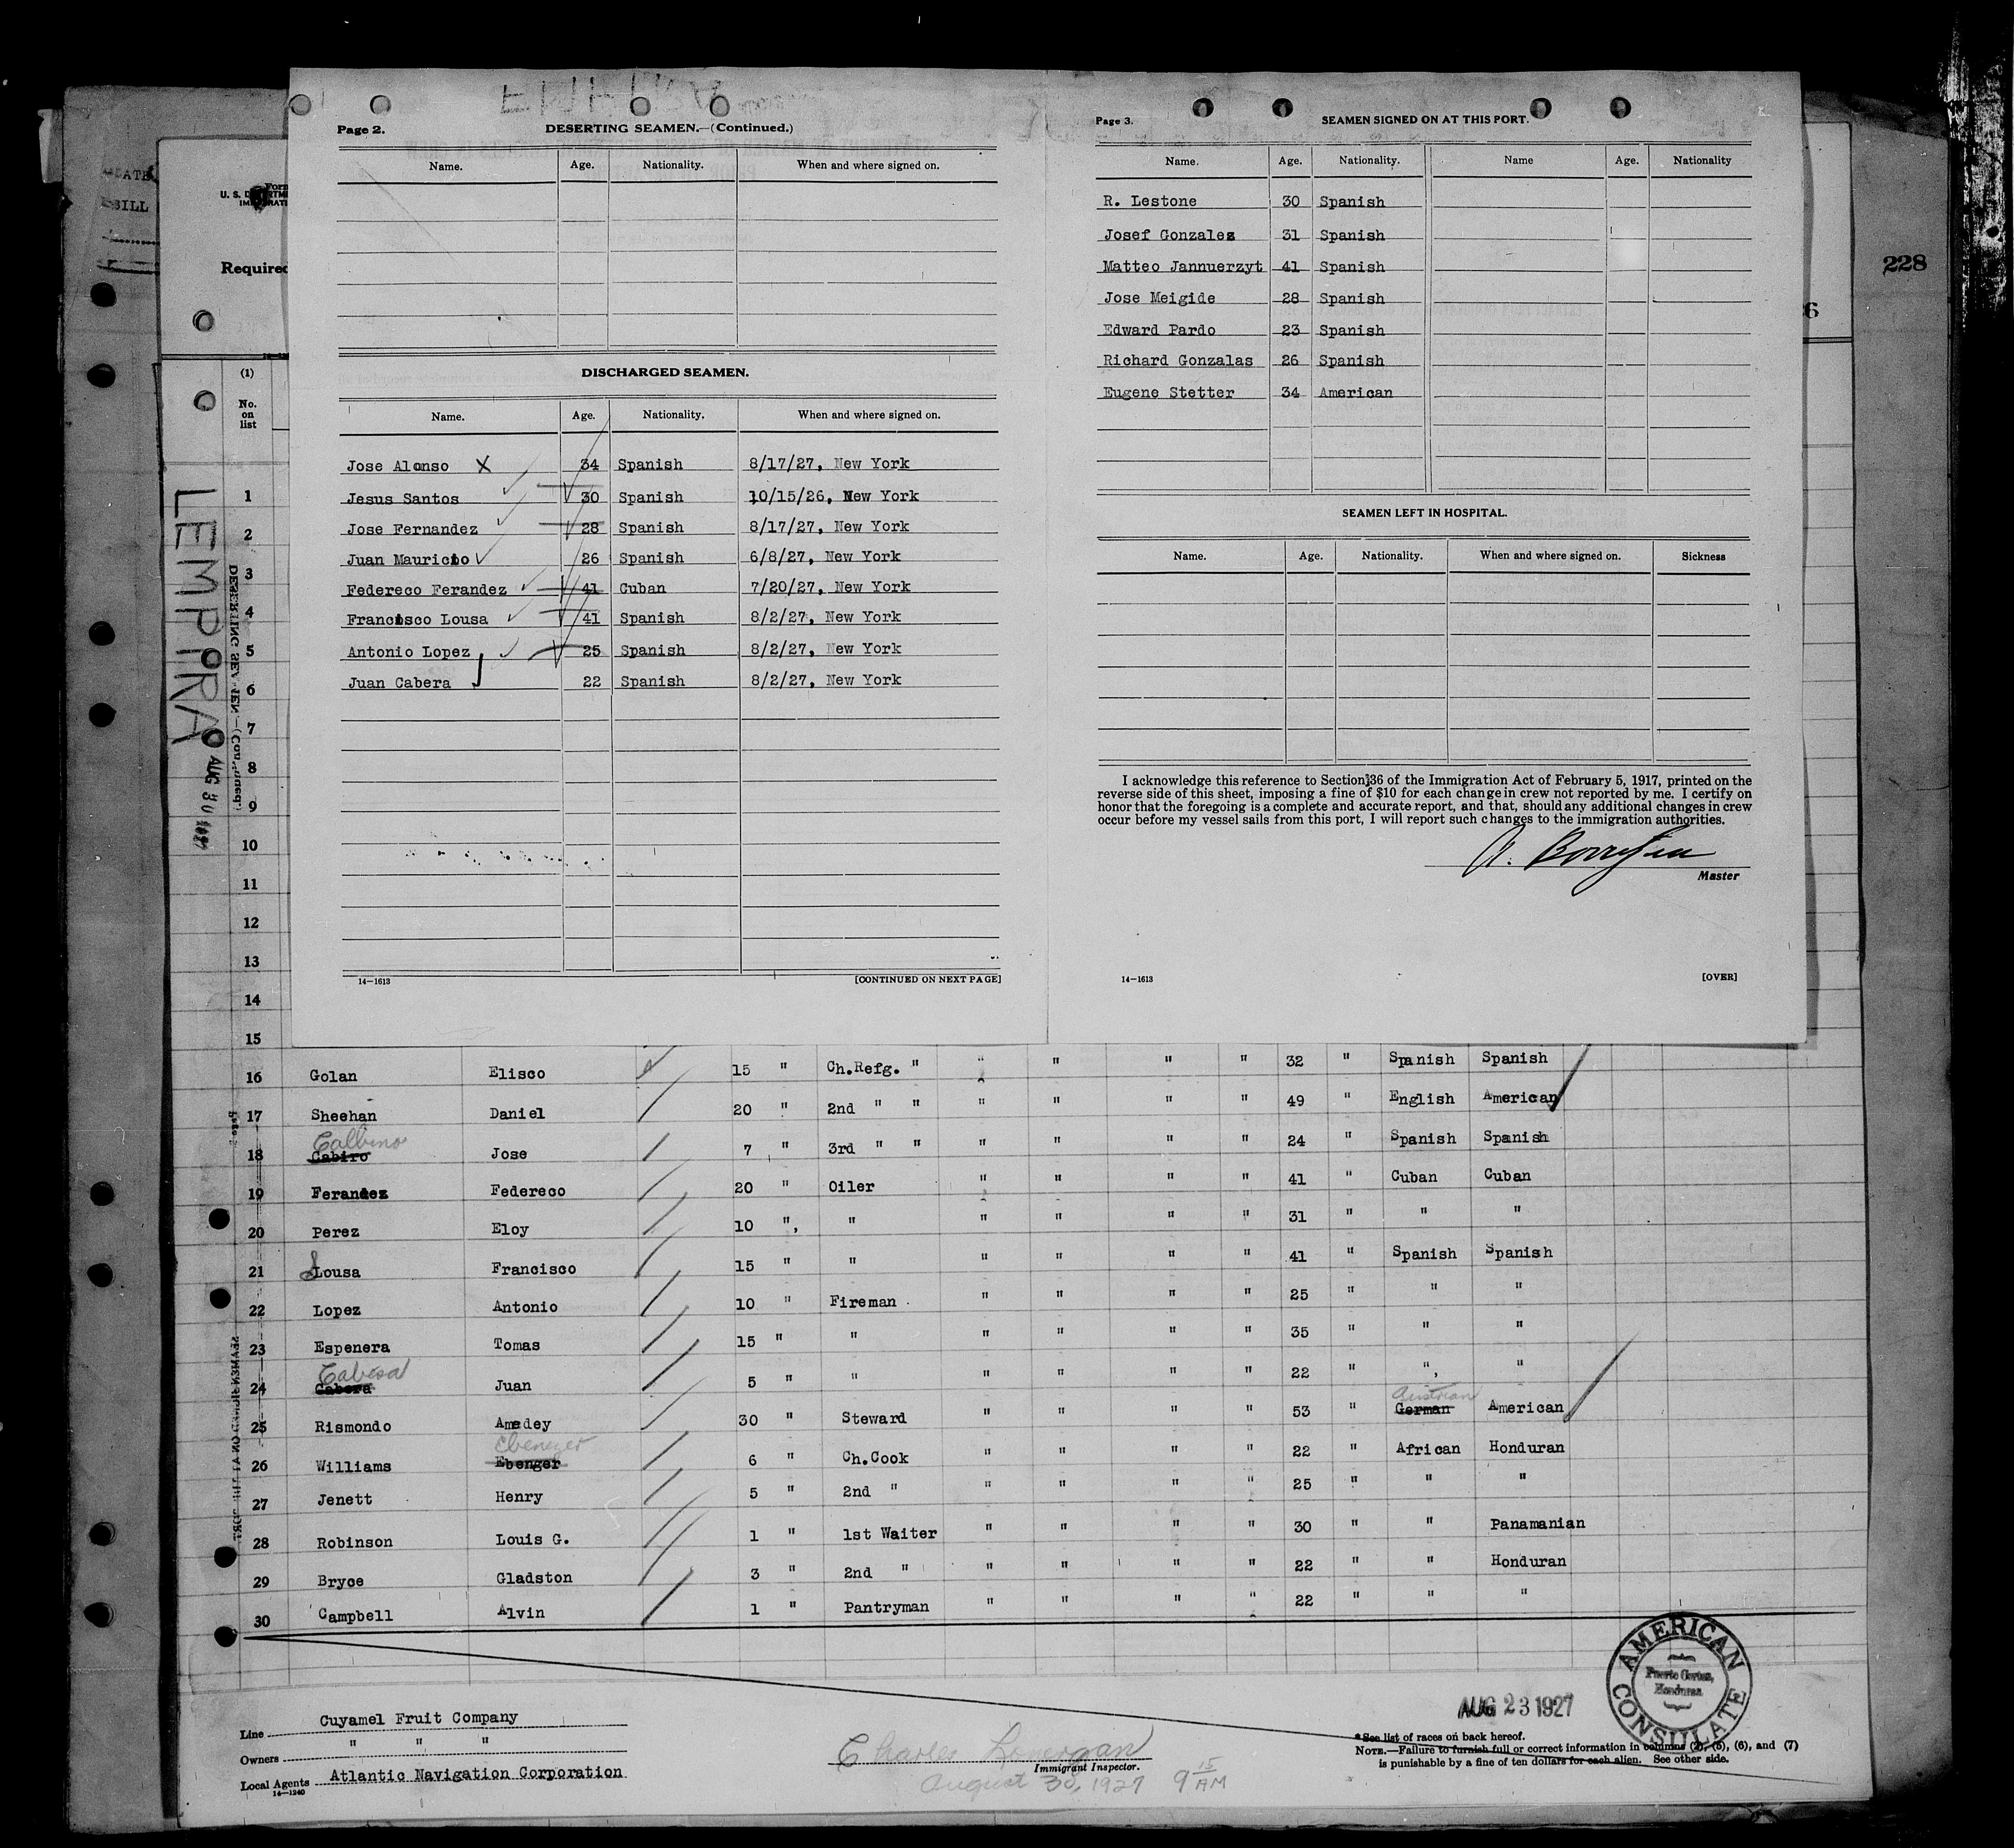 Page 2.
DESERTING SEAMEN.—(Continued.)
Name. Age. Nationality. When and where signed on.
DISCHARGED SEAMEN.
Name. Age. Nationality. When and where signed on.
Jose Alonso X 34 Spanish 8/17/27, New York
Jesus Santos 30 Spanish 10/15/26, New York
Jose Fernandez 28 Spanish 8/17/27, New York
Juan Mauricio 26 Spanish 6/8/27, New York
Federeco Ferandez 41 Cuban 7/20/27, New York
Francisco Lousa 41 Spanish 8/2/27, New York
Antonio Lopez 25 Spanish 8/2/27, New York
Juan Cabera 22 Spanish 8/2/27, New York
14—1613 [CONTINUED ON NEXT PAGE]
Page 3.
SEAMEN SIGNED ON AT THIS PORT.
Name. Age. Nationality. Name Age. Nationality
R. Lestone 30 Spanish
Josef Gonzales 31 Spanish
Matteo Jannuerzyt 41 Spanish
Jose Meigide 28 Spanish
Edward Pardo 23 Spanish
Richard Gonzalas 26 Spanish
Eugene Stetter 34 American
SEAMEN LEFT IN HOSPITAL.
Name. Age. Nationality. When and where signed on. Sickness
I acknowledge this reference to Section 36 of the Immigration Act of February 5, 1917, printed on the
reverse side of this sheet, imposing a fine of $10 for each change in crew not reported by me. I certify on
honor that the foregoing is a complete and accurate report, and that, should any additional changes in crew
occur before my vessel sails from this port, I will report such changes to the immigration authorities.
Master
14—1613 [OVER]
228
6
SILL
Form
U. S. DEPARTME
IMMIGRATI
Required
(1)
No.
on
list
LEMPIRA
AUG 30 1927
1
2
3
4
5
6
7
8
9
10
11
12
13
14
15
16 Golan Elisco 15 " Ch.Refg. " " " " " 32 " Spanish Spanish
17 Sheehan Daniel 20 " 2nd " " " " " " 49 " English American
Calbino
18 Cabiro Jose 7 " 3rd " " " " " " 24 " Spanish Spanish
19 Ferandez Federeco 20 " Oiler " " " " 41 " Cuban Cuban
20 Perez Eloy 10 " " " " " " 31 " " "
21 Lousa Francisco 15 " " " " " " 41 " Spanish Spanish
22 Lopez Antonio 10 " Fireman " " " " 25 " " "
23 Espenera Tomas 15 " " " " " " 35 " " "
Cabesa
24 Cabera Juan 5 " " " " " " 22 " " "
Austrian
25 Rismondo Amedey 30 " Steward " " " " 53 " German American
Ebenezer
26 Williams Ebenger 6 " Ch.Cook " " " " 22 " African Honduran
27 Jenett Henry 5 " 2nd " " " " " 25 " " "
28 Robinson Louis G. 1 " 1st Waiter " " " " 30 " " Panamanian
29 Bryce Gladston 3 " 2nd " " " " " 22 " " Honduran
30 Campbell Alvin 1 " Pantryman " " " " 22 " " "
Line Cuyamel Fruit Company
Owners " " "
Local Agents Atlantic Navigation Corporation
14—1240
Charles Lonergan
Immigrant Inspector.
August 30, 1927 9 15 AM
AUG 23 1927
AMERICAN CONSULATE
Puerto Cortes,
Honduras
* See list of races on back hereof.
NOTE.—Failure to furnish full or correct information in columns (2), (5), (6), and (7)
is punishable by a fine of ten dollars for each alien. See other side.